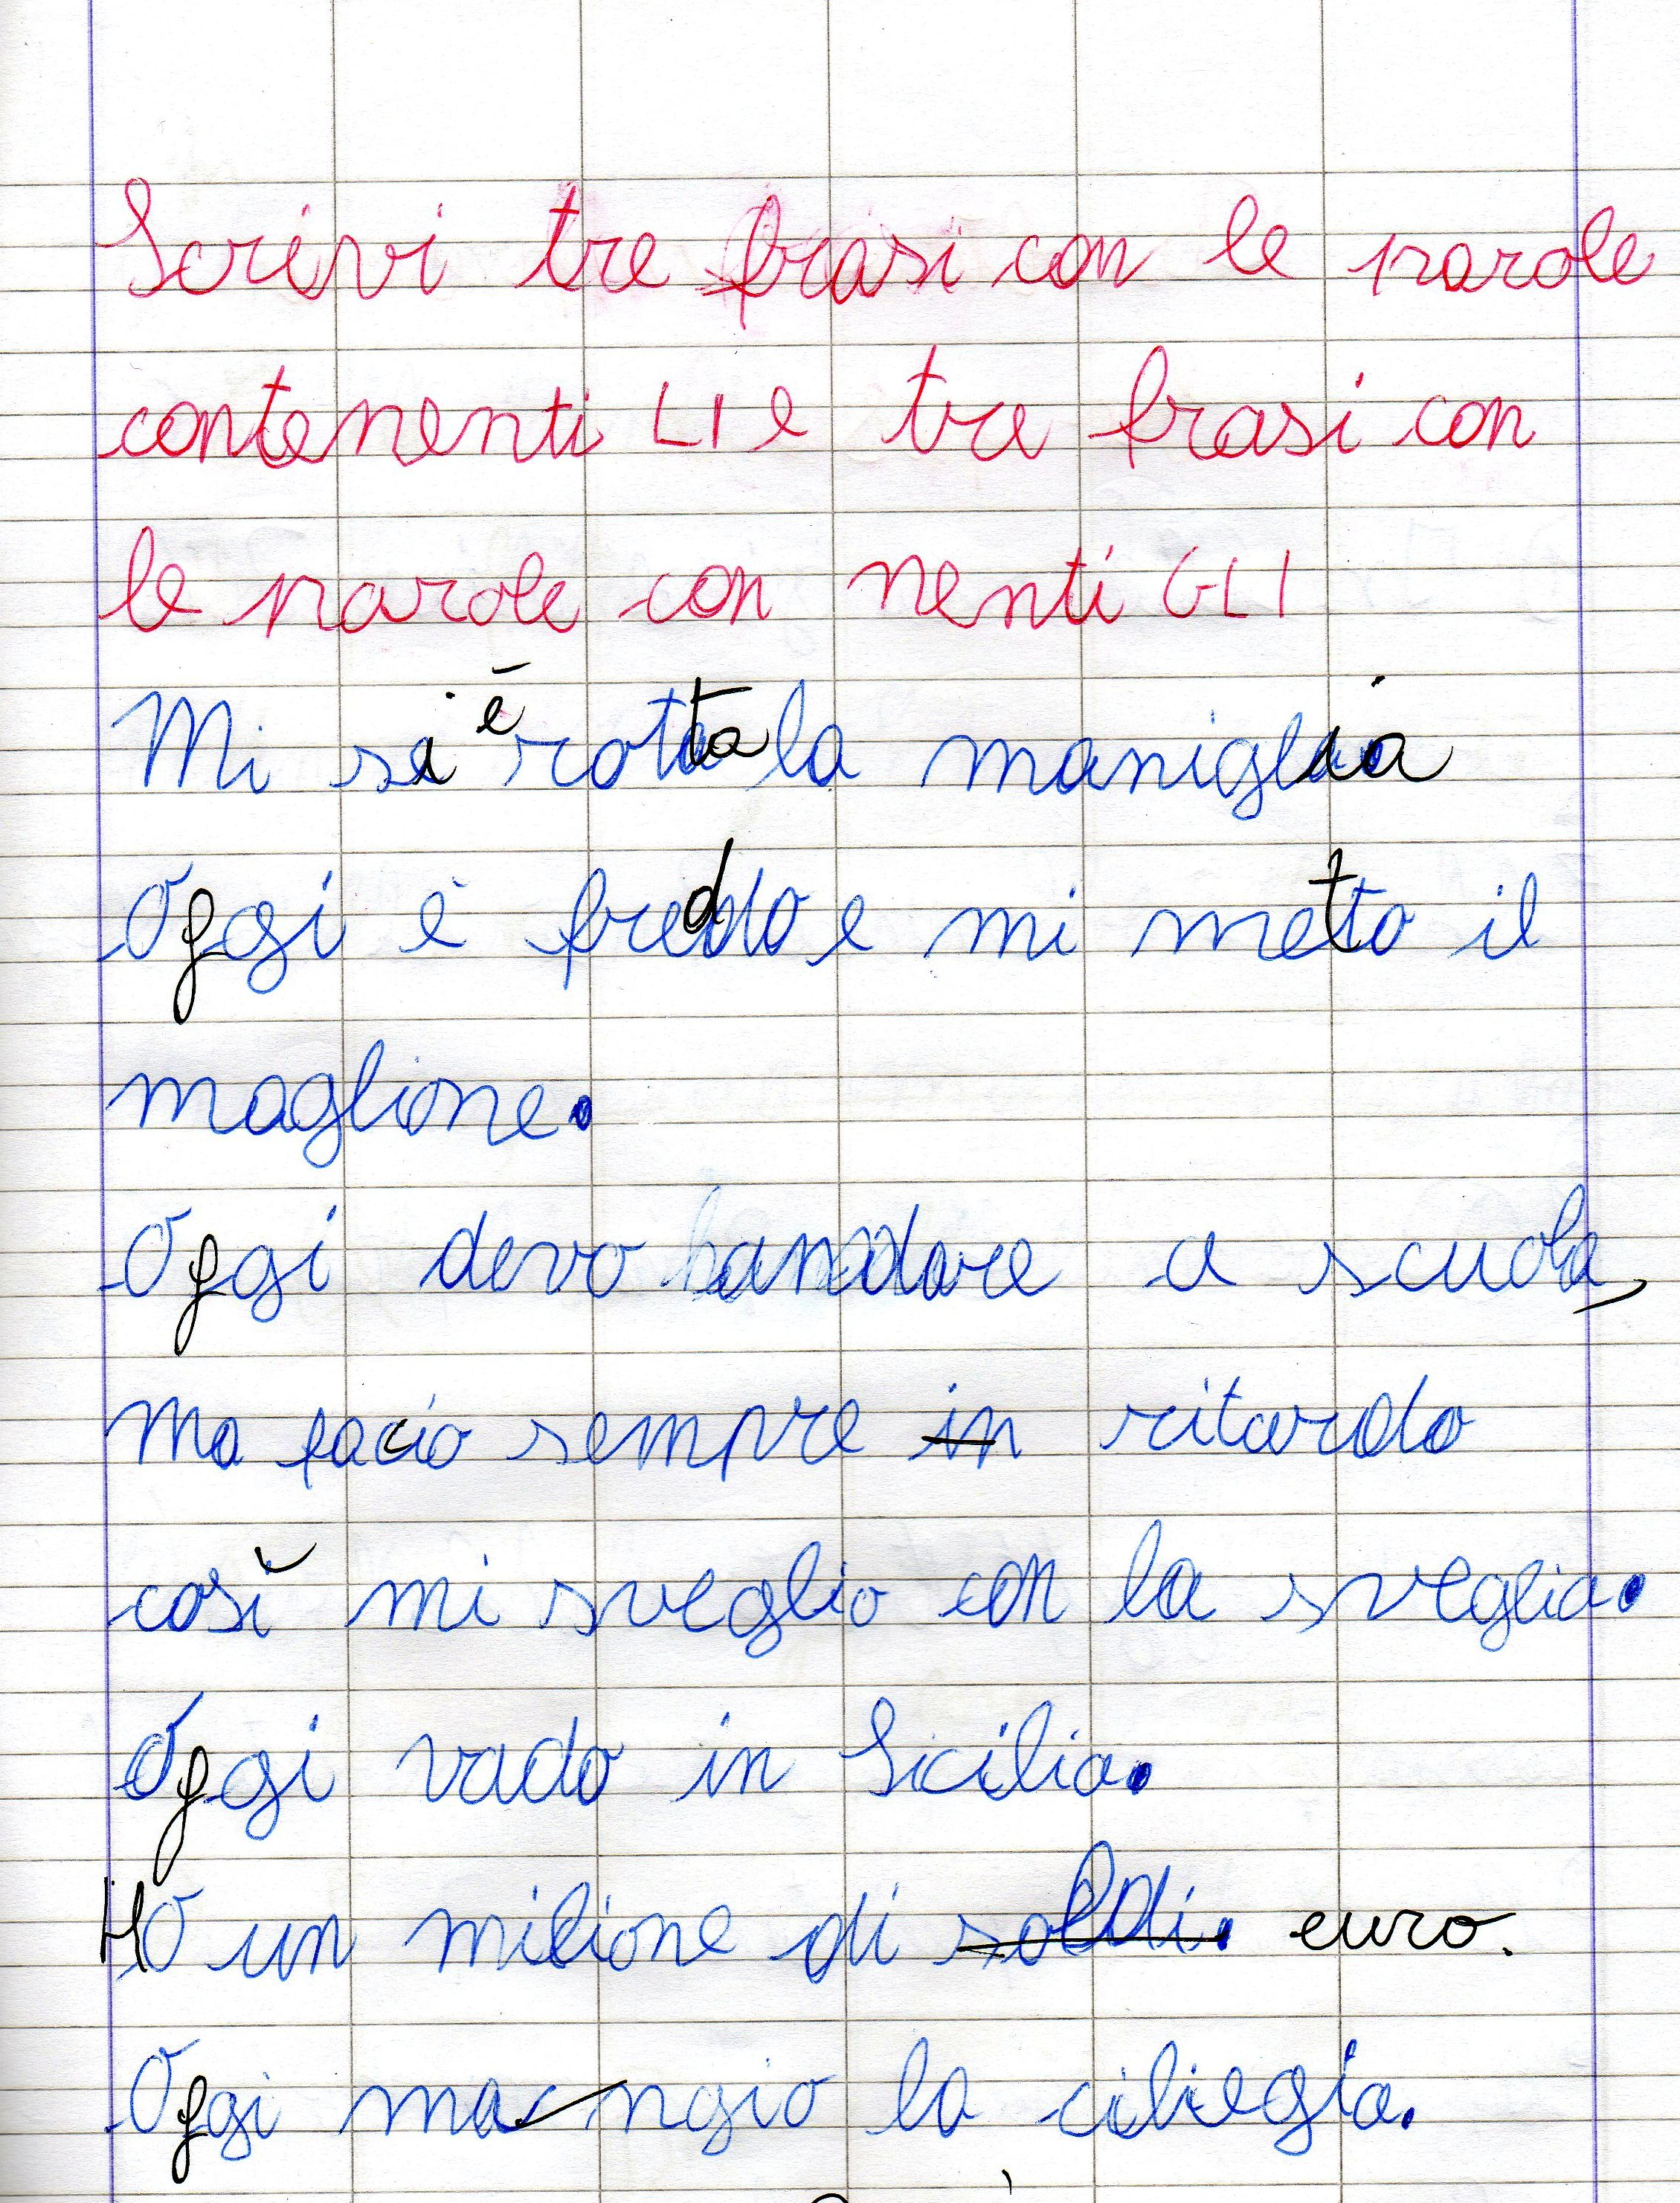 Scrivi tre frasi con le parole
contenenti LI e tre frasi con
le parole con nenti GLI
Mi si è rotta la maniglia
Oggi è freddo e mi metto il
maglione.
Oggi devo handare a scuola,
Ma facio sempre in ritardo
così mi sveglio con la sveglia.
Oggi vado in Sicilia.
HO un milione di soldi. euro.
Oggi mangio la ciliegia.